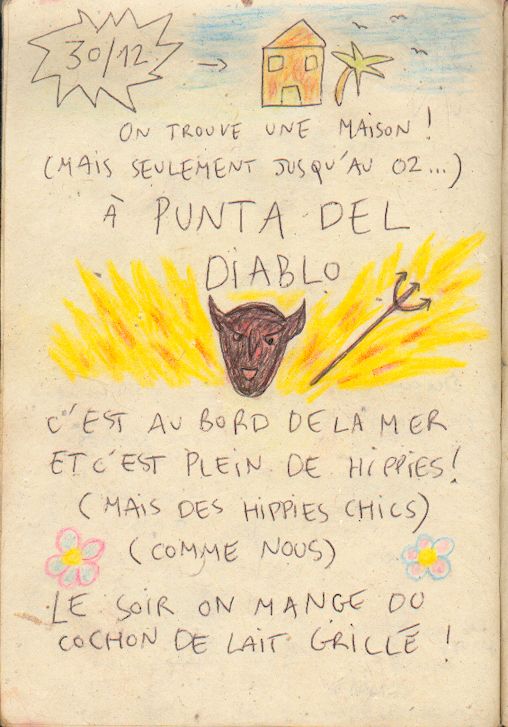 30/12
ON TROUVE UNE MAISON !
(MAIS SEULEMENT JUSQU'AU 02...)
À PUNTA DEL
DIABLO
C'EST AU BORD DE LA MER
ET C'EST PLEIN DE HIPPIES !
(MAIS DES HIPPIES CHICS)
(COMME NOUS)
LE SOIR ON MANGE DU
COCHON DE LAIT GRILLÉ !